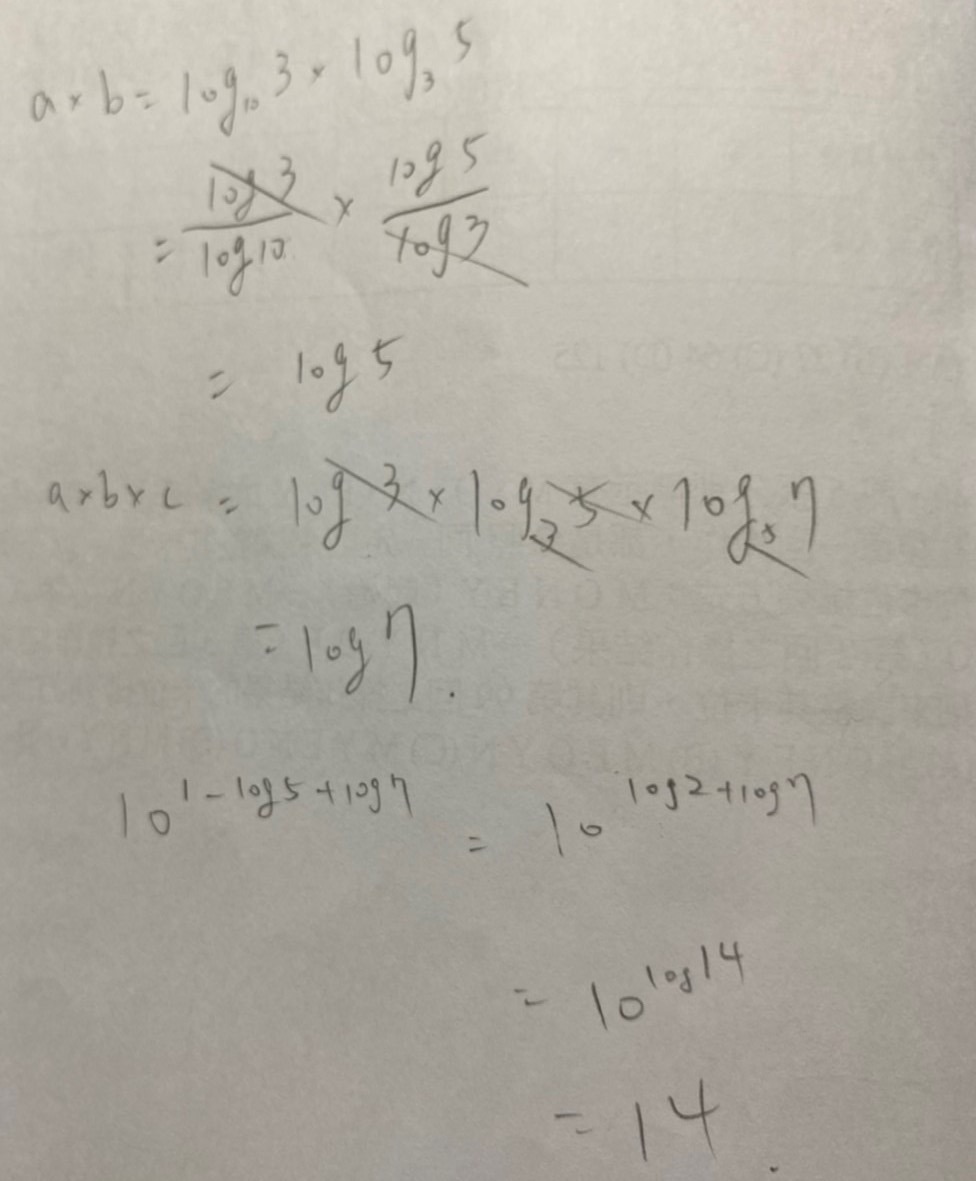 a × b = log₁₀ 3 × log₃ 5
= log 3 / log 10 × log 5 / log 3
= log 5
a × b × c = log 3 × log₃ 5 × log₅ 7
= log 7.
10^(1 - log 5 + log 7) = 10^(log 2 + log 7)
= 10^(log 14)
= 14.